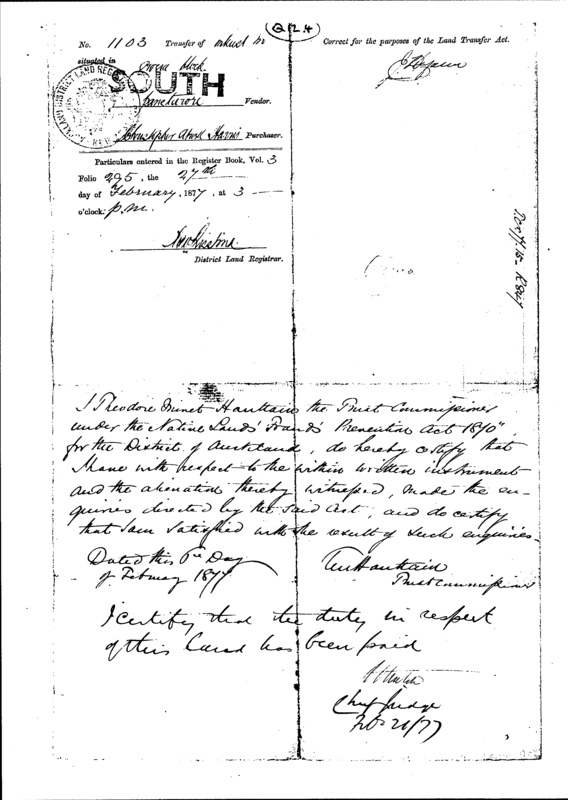 Q24
No. 1103 Transfer of interest in
situated in Owera block
SOUTH
Vendor.
Christopher Albert Harris Purchaser.
Particulars entered in the Register Book, Vol. 3
Folio 295, the 27th
day of February, 1877, at 3
o'clock p.m.
District Land Registrar.
Correct for the purposes of the Land Transfer Act.
I Theodore Minet Haultain the Trust Commissioner
under the "Native Lands' Frauds' Prevention Act 1870"
for the District of Auckland, do hereby certify that
I have with respect to the within written instrument
and the alienation thereby witnessed, made the en-
quiries directed by the said Act, and do certify
that I am satisfied with the result of such enquiries.
Dated this 6th Day
of February 1877
TM Haultain
Trust Commissioner
I certify that the duty in respect
of this Land has been paid
Chief Judge
Feb 20/77